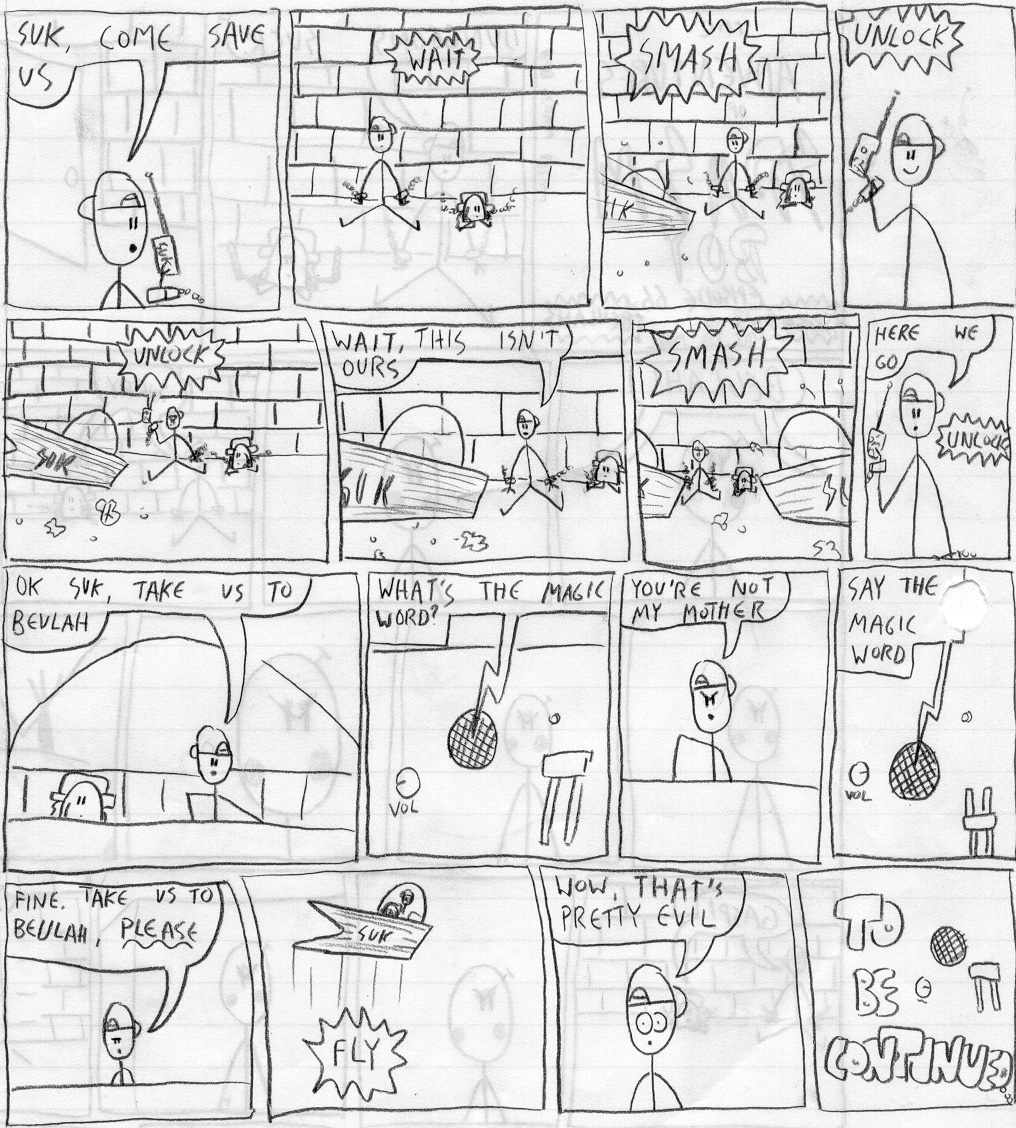 SUK, COME SAVE
US
SUK
WAIT
SMASH
UK
UNLOCK
UNLOCK
SUK
WAIT, THIS ISN'T
OURS
SUK
SMASH
K
SU
HERE WE
GO
UNLOCK
OK SUK, TAKE US TO
BEULAH
WHAT'S THE MAGIC
WORD?
VOL
YOU'RE NOT
MY MOTHER
SAY THE
MAGIC
WORD
VOL
FINE. TAKE US TO
BEULAH, PLEASE
SUK
FLY
WOW, THAT'S
PRETTY EVIL
TO
BE
CONTINUED